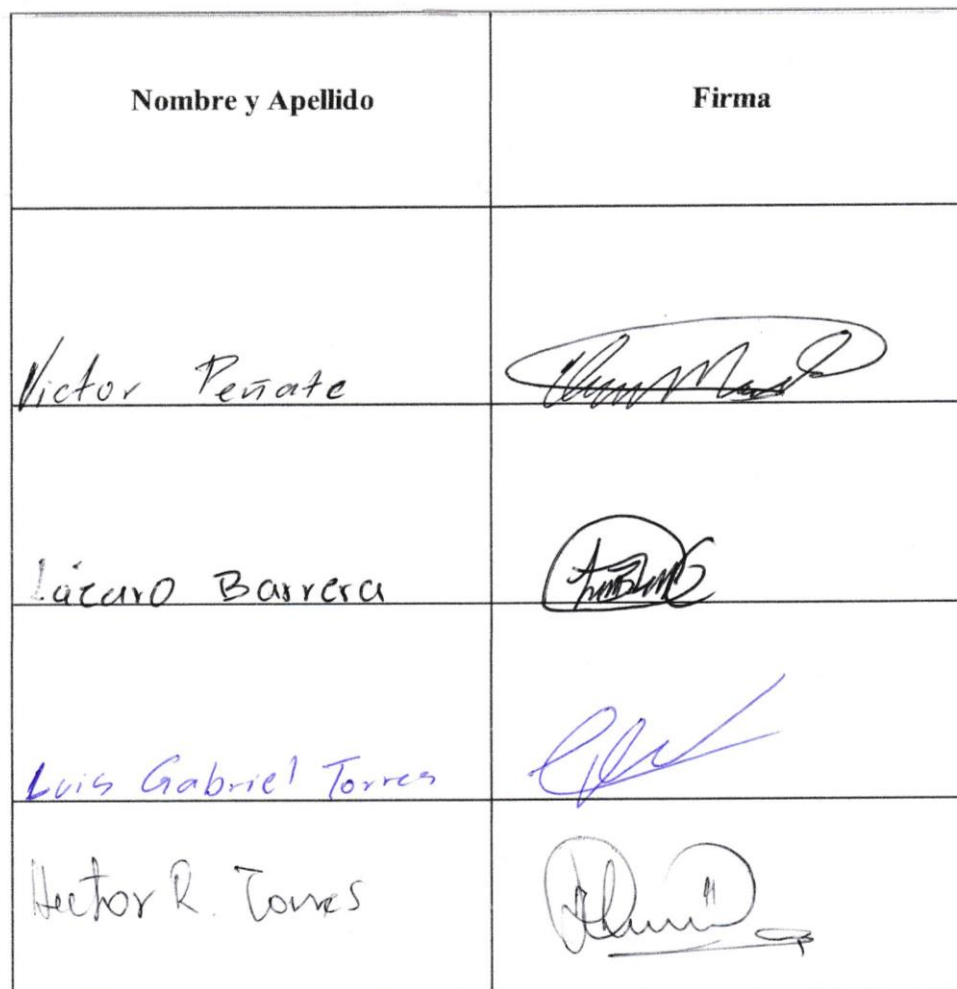 Nombre y Apellido Firma
Victor Peñate
Lázaro Barrera
Luis Gabriel Torres
Hector R. Torres